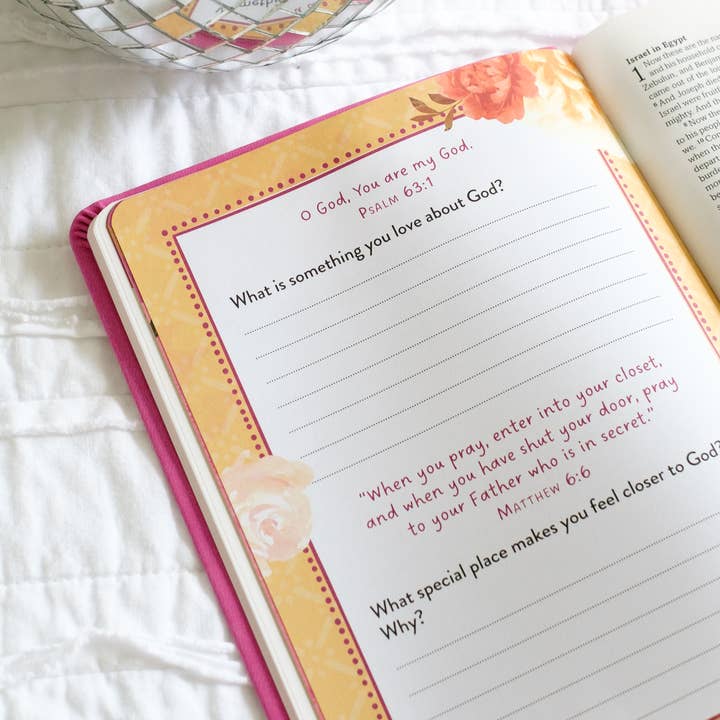 O God, You are my God.
Psalm 63:1
What is something you love about God?
"When you pray, enter into your closet,
and when you have shut your door, pray
to your Father who is in secret."
Matthew 6:6
What special place makes you feel closer to God?
Why?
Israel in Egypt
1 Now these are the
and his house
Zebulun, and Benja
came out of the
And Joseph
Israel were
mighty. And
Now the
to his people
we.
come, when
when the